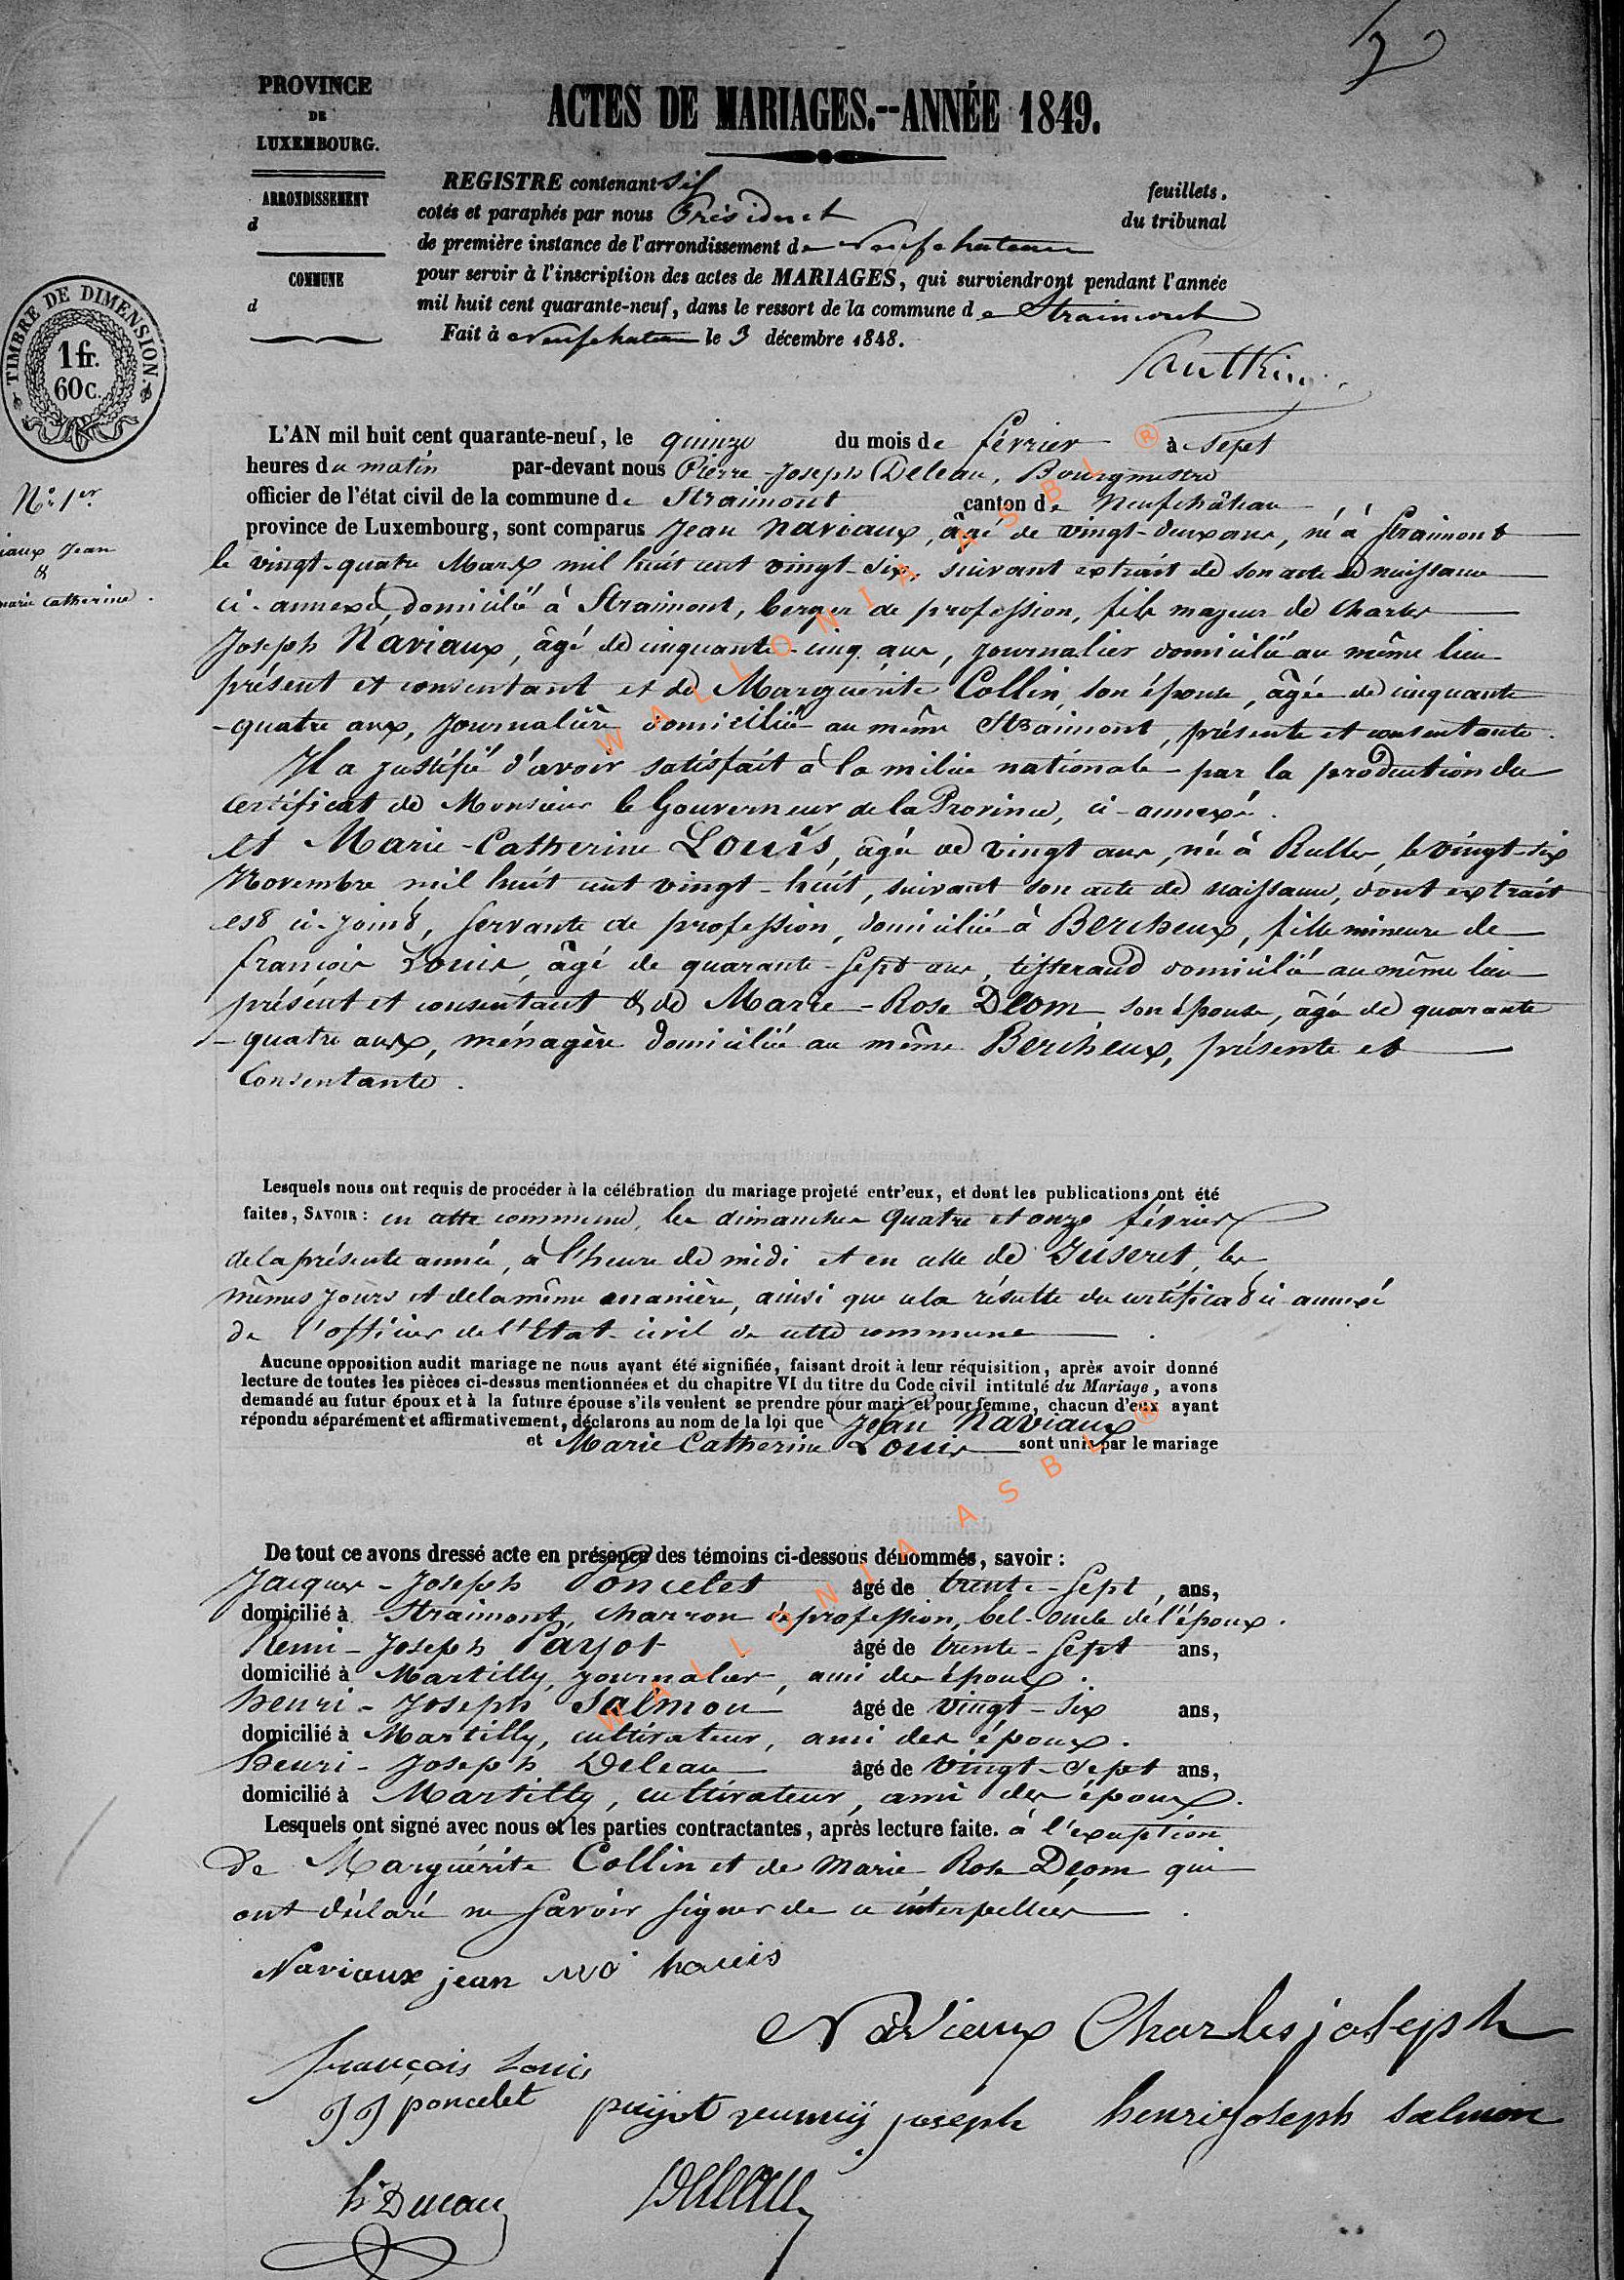 PROVINCE
DE
LUXEMBOURG.
ARRONDISSEMENT
d
COMMUNE
d
TIMBRE DE DIMENSION.
1 fr.
60 c.
ACTES DE MARIAGES.--ANNÉE 1849.
REGISTRE contenant six feuillets,
cotés et paraphés par nous Président du tribunal
de première instance de l'arrondissement de Neufchateau
pour servir à l'inscription des actes de MARIAGES, qui surviendront pendant l'année
mil huit cent quarante-neuf, dans le ressort de la commune de Straimont
Fait à Neufchateau le 3 décembre 1848.
N° 1er
iaux Jean
&
marie Catherine.
L'AN mil huit cent quarante-neuf, le quinze du mois de février à sept
heures du matin par-devant nous Pierre-Joseph Deleau, Bourgmestre
officier de l'état civil de la commune de Straimont canton de Neufchâteau
province de Luxembourg, sont comparus Jean Naviaux, âgé de vingt-deux ans, né à Straimont
le vingt-quatre Mars mil huit cent vingt-six, suivant extrait de son acte de naissance
ci-annexé, domicilié à Straimont, berger de profession, fils majeur de Charles
Joseph Naviaux, âgé de cinquante-cinq ans, journalier domicilié au même lieu
présent et consentant et de Marguerite Collin, son épouse, âgée de cinquante
-quatre ans, journalière domiciliée au même Straimont, présente et consentante.
Il a justifié d'avoir satisfait à la milice nationale par la production du
certificat de Monsieur le Gouverneur de la Province, ci-annexé.
et Marie-Catherine Louis, âgée de vingt ans, née à Rulles, le vingt-six
Novembre mil huit cent vingt-huit, suivant son acte de naissance, dont extrait
est ci-joint, servante de profession, domiciliée à Bercheux, fille mineure de
François Louis, âgé de quarante-sept ans, tisserand domicilié au même lieu
présent et consentant & de Marie-Rose Dlom, son épouse, âgée de quarante
-quatre ans, ménagère domiciliée au même Bercheux, présente et
Consentante.
Lesquels nous ont requis de procéder à la célébration du mariage projeté entr'eux, et dont les publications ont été
faites, SAVOIR: en cette commune, les dimanches quatre et onze février
de la présente année, à l'heure de midi et en celle de Juseret, les
mêmes jours et de la même manière, ainsi que cela résulte du certificat ci-annexé
de l'officier de l'Etat-civil de cette commune.
Aucune opposition audit mariage ne nous ayant été signifiée, faisant droit à leur réquisition, après avoir donné
lecture de toutes les pièces ci-dessus mentionnées et du chapitre VI du titre du Code civil intitulé du Mariage, avons
demandé au futur époux et à la future épouse s'ils veulent se prendre pour mari et pour femme, chacun d'eux ayant
répondu séparément et affirmativement, déclarons au nom de la loi que Jean Naviaux
et Marie Catherine Louis sont unis par le mariage
De tout ce avons dressé acte en présence des témoins ci-dessous dénommés, savoir:
Jacques-Joseph Poncelet âgé de trente-sept ans,
domicilié à Straimont, charron de profession, bel-oncle de l'époux.
Remi-Joseph Payot âgé de trente-sept ans,
domicilié à Martilly, journalier, ami des époux.
henri-Joseph Salmon âgé de vingt-six ans,
domicilié à Martilly, cultivateur, ami des époux.
henri-Joseph Deleau âgé de vingt-sept ans,
domicilié à Martilly, cultivateur, ami des époux.
Lesquels ont signé avec nous et les parties contractantes, après lecture faite. à l'exception
de Marguérite Collin et de Marie-Rose Dlom qui
ont déclaré ne savoir signer de ce interpellées.
Naviaux jean
Naviaux Charles joseph
François Louis
JJ poncelet joseph henri Joseph Salmon
WALLONIA ASBL ®
WALLONIA ASBL ®